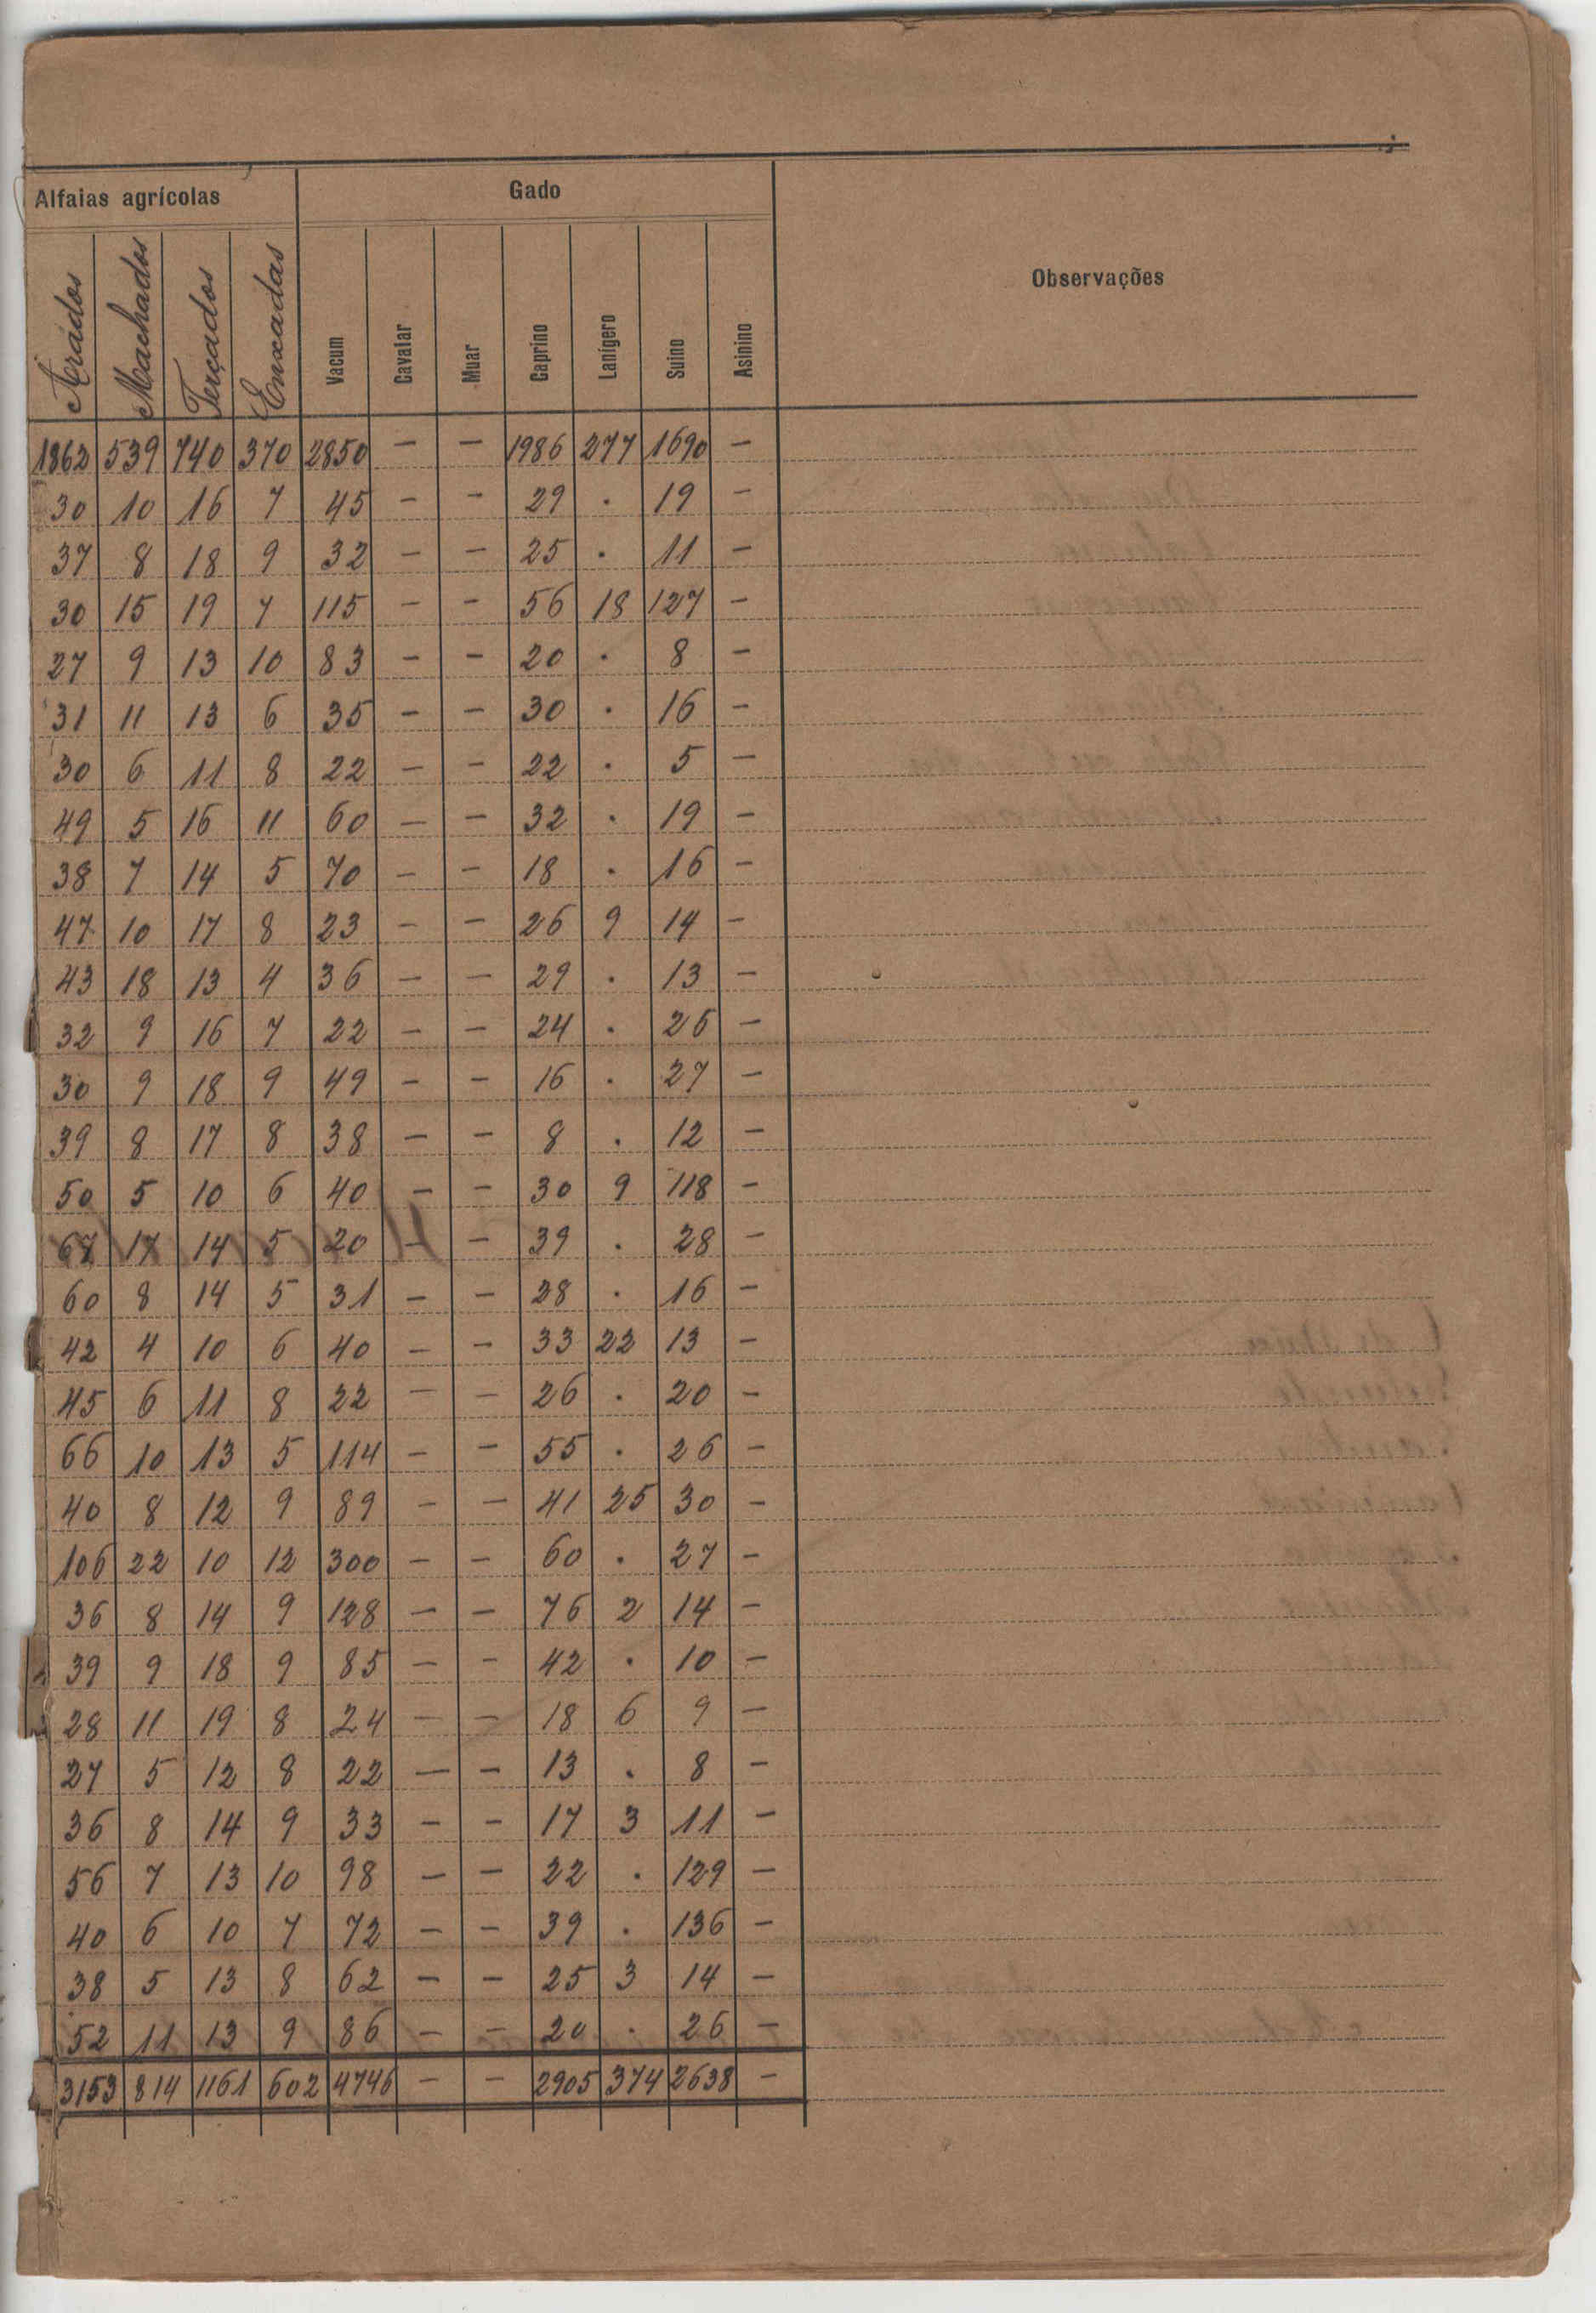 Alfaias agrícolas Gado Observações
Arados Machados Terçados Enxadas Vacum Cavalar Muar Caprino Lanígero Suino Asinino
1862 539 740 370 2850 – – 1986 277 1690 –
30 10 16 7 45 – – 29 . 19 –
37 8 18 9 32 – – 25 . 11 –
30 15 19 7 115 – – 56 18 127 –
27 9 13 10 83 – – 20 . 8 –
31 11 13 6 35 – – 30 . 16 –
30 6 11 8 22 – – 22 . 5 –
49 5 16 11 60 – – 32 . 19 –
38 7 14 5 70 – – 18 . 16 –
47 10 17 8 23 – – 26 9 14 –
43 18 13 4 36 – – 29 . 13 –
32 9 16 7 22 – – 24 . 26 –
30 9 18 9 49 – – 16 . 27 –
39 8 17 8 38 – – 8 . 12 –
50 5 10 6 40 – – 30 9 118 –
67 17 14 5 20 – – 39 . 28 –
60 8 14 5 31 – – 28 . 16 –
42 4 10 6 40 – – 33 22 13 –
45 6 11 8 22 – – 26 . 20 –
66 10 13 5 114 – – 55 . 26 –
40 8 12 9 89 – – 41 25 30 –
106 22 10 12 300 – – 60 . 27 –
36 8 14 9 128 – – 76 2 14 –
39 9 18 9 85 – – 42 . 10 –
28 11 19 8 24 – – 18 6 9 –
27 5 12 8 22 – – 13 . 8 –
36 8 14 9 33 – – 17 3 11 –
56 7 13 10 98 – – 22 . 129 –
40 6 10 7 72 – – 39 . 136 –
38 5 13 8 62 – – 25 3 14 –
52 11 13 9 86 – – 20 . 26 –
3153 814 1161 602 4746 – – 2905 374 2638 –